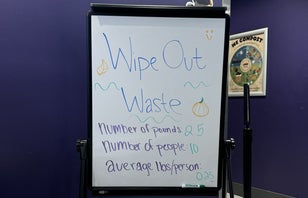 Wipe Out
Waste
Number of pounds: 25
Number of people: 10
average lbs/person:
0.25
WE COMPOST